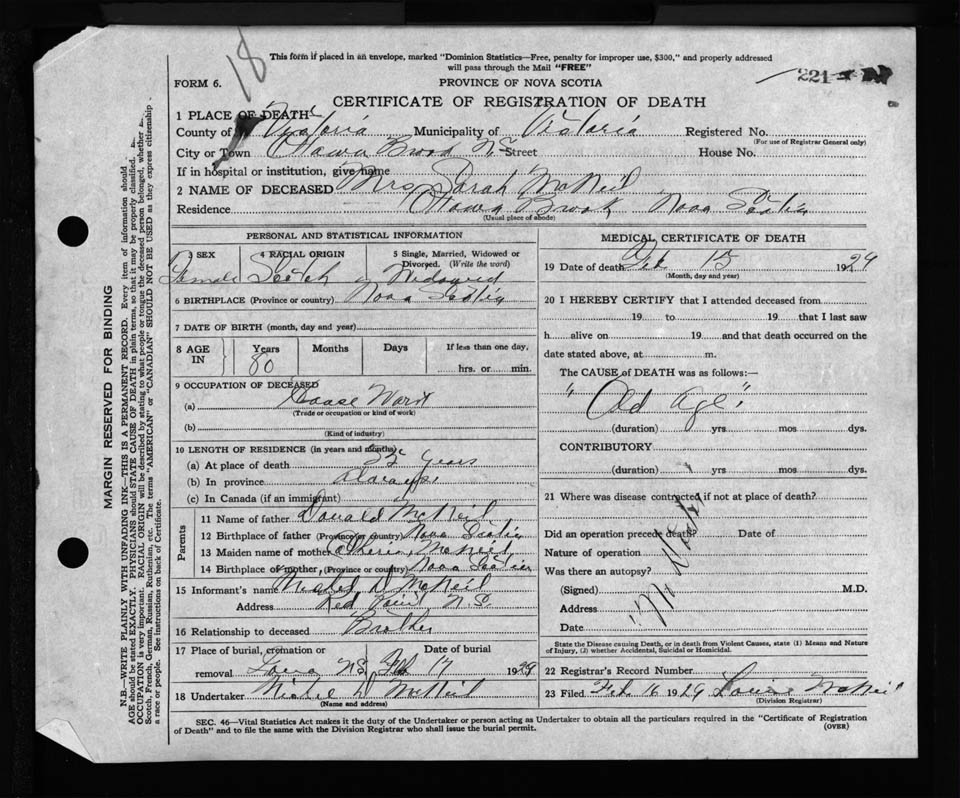 18
This form if placed in an envelope, marked "Dominion Statistics—Free, penalty for improper use, $300," and properly addressed
will pass through the Mail "FREE"
221
FORM 6.
PROVINCE OF NOVA SCOTIA
CERTIFICATE OF REGISTRATION OF DEATH
1 PLACE OF DEATH
County of Victoria Municipality of Victoria Registered No.
(For use of Registrar General only)
City or Town Ottawa Brook N.S. Street House No.
If in hospital or institution, give name
2 NAME OF DECEASED Mrs Sarah McNeil
Residence Ottawa Brook Nova Scotia
(Usual place of abode)
PERSONAL AND STATISTICAL INFORMATION
3 SEX 4 RACIAL ORIGIN 5 Single, Married, Widowed or
Divorced. (Write the word)
Female Scotch Widowed
6 BIRTHPLACE (Province or country) Nova Scotia
7 DATE OF BIRTH (month, day and year)
8 AGE IN Years Months Days If less than one day,
80 hrs. or min.
9 OCCUPATION OF DECEASED
(a) House Work
(Trade or occupation or kind of work)
(b)
(Kind of industry)
10 LENGTH OF RESIDENCE (in years and months)
(a) At place of death years
(b) In province always
(c) In Canada (if an immigrant)
Parents
11 Name of father Donald McNeil
12 Birthplace of father (Province or country) Nova Scotia
13 Maiden name of mother McNeil
14 Birthplace of mother, (Province or country) Nova Scotia
15 Informant's name D McNeil
Address Red Point N.S.
16 Relationship to deceased Brother
17 Place of burial, cremation or Date of burial
removal Iona NS Feb 17 1929
18 Undertaker D McNeil
(Name and address)
MEDICAL CERTIFICATE OF DEATH
19 Date of death Feb 15 1929
(Month, day and year)
20 I HEREBY CERTIFY that I attended deceased from
19 to 19 that I last saw
h alive on 19 and that death occurred on the
date stated above, at m.
The CAUSE OF DEATH was as follows:—
"Old Age"
(duration) yrs mos dys.
CONTRIBUTORY
(duration) yrs mos dys.
21 Where was disease contracted if not at place of death?
Did an operation precede death? Date of
Nature of operation
Was there an autopsy?
(Signed) M.D.
Address
Date
State the Disease causing Death, or in death from Violent Causes, state (1) Means and Nature
of Injury, (2) whether Accidental, Suicidal or Homicidal.
22 Registrar's Record Number
23 Filed Feb 16 1929 Louise McNeil
(Division Registrar)
SEC. 46—Vital Statistics Act makes it the duty of the Undertaker or person acting as Undertaker to obtain all the particulars required in the "Certificate of Registration
of Death" and to file the same with the Division Registrar who shall issue the burial permit.
(OVER)
MARGIN RESERVED FOR BINDING
N.B.—WRITE PLAINLY WITH UNFADING INK—THIS IS A PERMANENT RECORD. Every item of information should
AGE should be stated EXACTLY. PHYSICIANS should STATE CAUSE OF DEATH in plain terms, so that it may be properly classified.
OCCUPATION is very important. RACIAL ORIGIN will be described by stating to what people or tongue the deceased person belonged, whether
Scotch, French, German, Russian, Ruthenian, etc. The terms "AMERICAN" or "CANADIAN" SHOULD NOT BE USED as they express citizenship
a race or people. See instructions on back of Certificate.